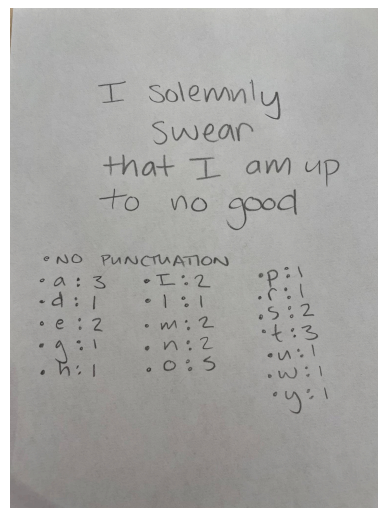 I solemnly
swear
that I am up
to no good
• NO PUNCTUATION
• a : 3
• d : 1
• e : 2
• g : 1
• h : 1
• I : 2
• l : 1
• m : 2
• n : 2
• o : 5
• p : 1
• r : 1
• s : 2
• t : 3
• u : 1
• w : 1
• y : 1